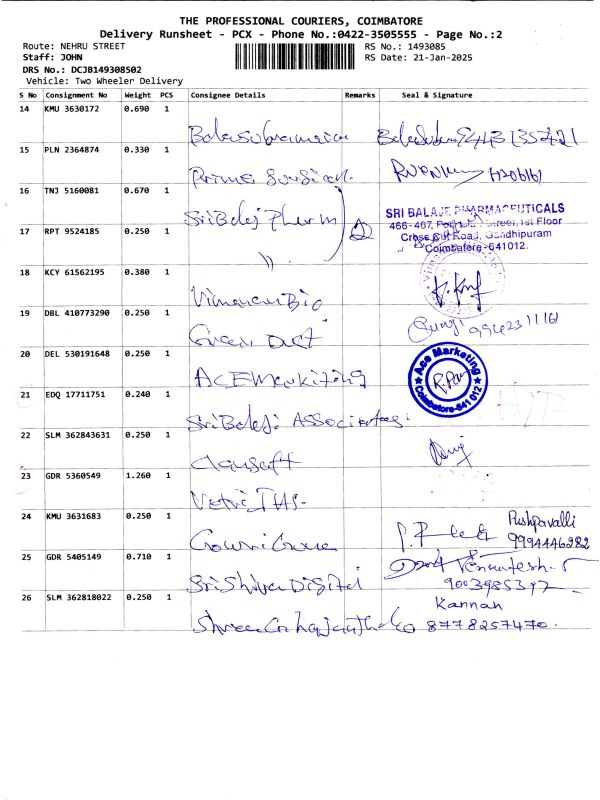 THE PROFESSIONAL COURIERS, COIMBATORE
Delivery Runsheet - PCX - Phone No.:0422-3505555 - Page No.:2
Route: NEHRU STREET RS No.: 1493085
Staff: JOHN RS Date: 21-Jan-2025
DRS No.: DCJB149308502
Vehicle: Two Wheeler Delivery
S No Consignment No Weight PCS Consignee Details Remarks Seal & Signature
14 KMU 3630172 0.690 1
Balasubramanian
15 PLN 2364874 0.330 1
Prime Surgical
16 TNJ 5160081 0.670 1
Sri Balaj Pharm
SRI BALAJE PHARMACEUTICALS
466-467, Street, 1st Floor
17 RPT 9524185 0.250 1
Cross Cut Road, Gandhipuram
Coimbatore-641012.
18 KCY 61562195 0.380 1
Bio
19 DBL 410773290 0.250 1
Green Dust 9942311161
20 DEL 530191648 0.250 1
ACE Marketing
Ace Marketing
Coimbatore-641 012
21 EDQ 17711751 0.240 1
Sri Balaji Associates
22 SLM 362843631 0.250 1
23 GDR 5360549 1.260 1
24 KMU 3631683 0.250 1
Pushpavalli
9994446282
25 GDR 5405149 0.710 1
Sri Shiva Digital
Venkatesh
26 SLM 362818022 0.250 1
Kannan
Shree 8778257470.